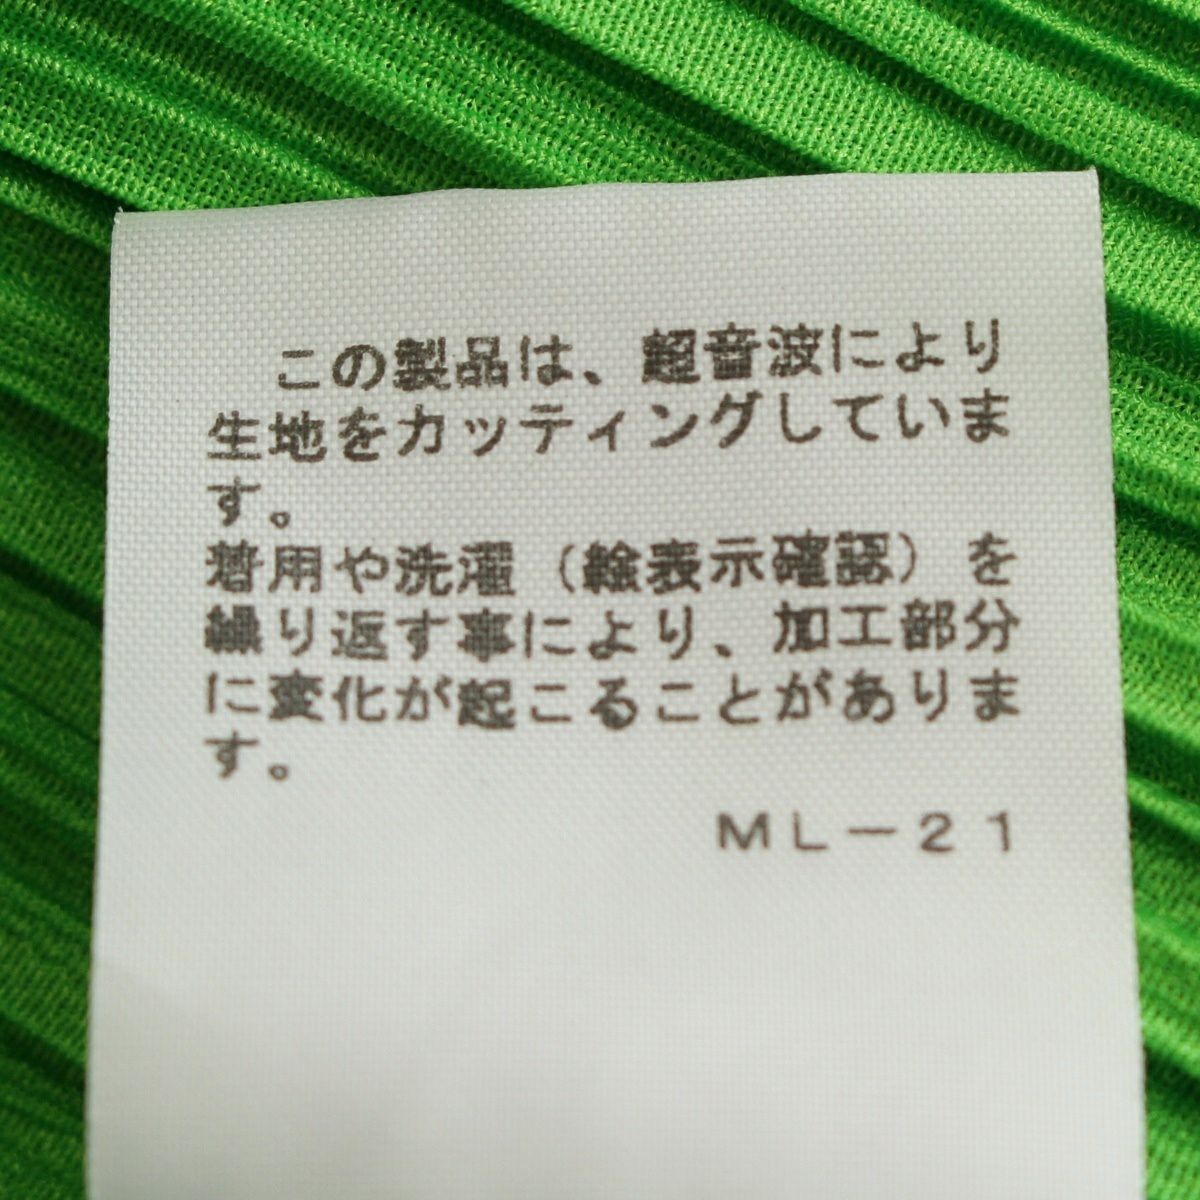 この製品は、超音波により
生地をカッティングしていま
す。
着用や洗濯（絵表示確認）を
繰り返す事により、加工部分
に変化が起こることがありま
す。
ＭＬ－２１